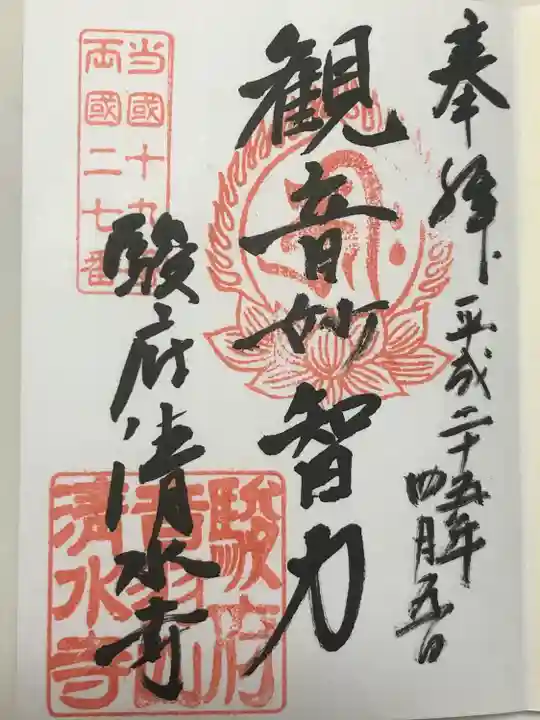 奉拝 平成二十五年四月五日
観音妙智力
駿府清水寺
当國十九
両國二七番
駿府
音羽山
清水寺